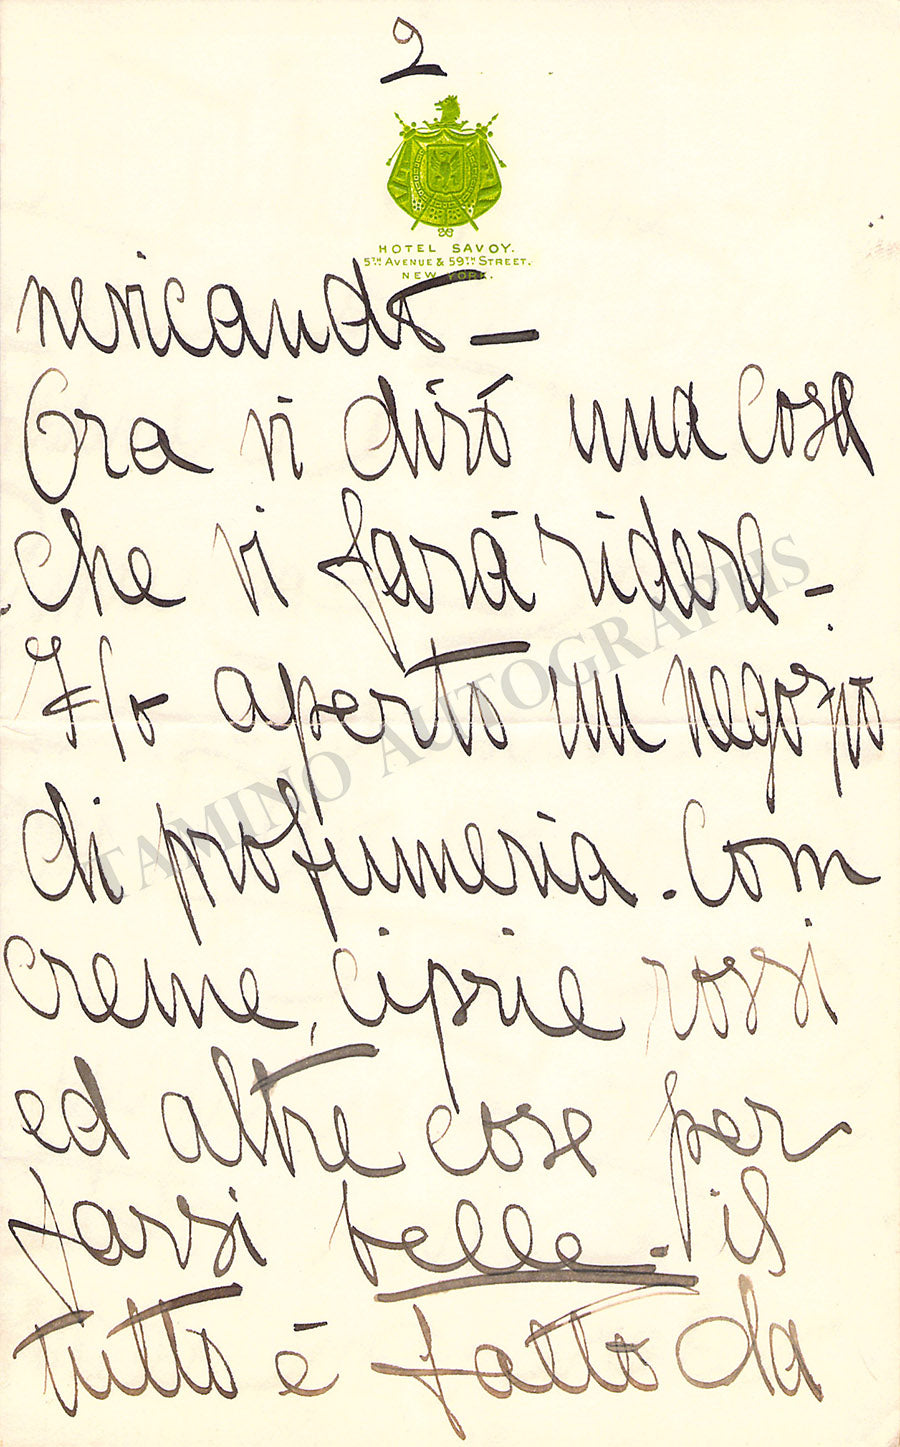 2
HOTEL SAVOY.
5TH AVENUE & 59TH STREET.
NEW YORK.
nevicando —
Ora vi dirò una cosa
che vi farà ridere –
Ho aperto un negozio
di profumeria. Com
creme, ciprie rossi
ed altre cose per
farsi belle. il
tutto è fatto da
TAMINO AUTOGRAPHS